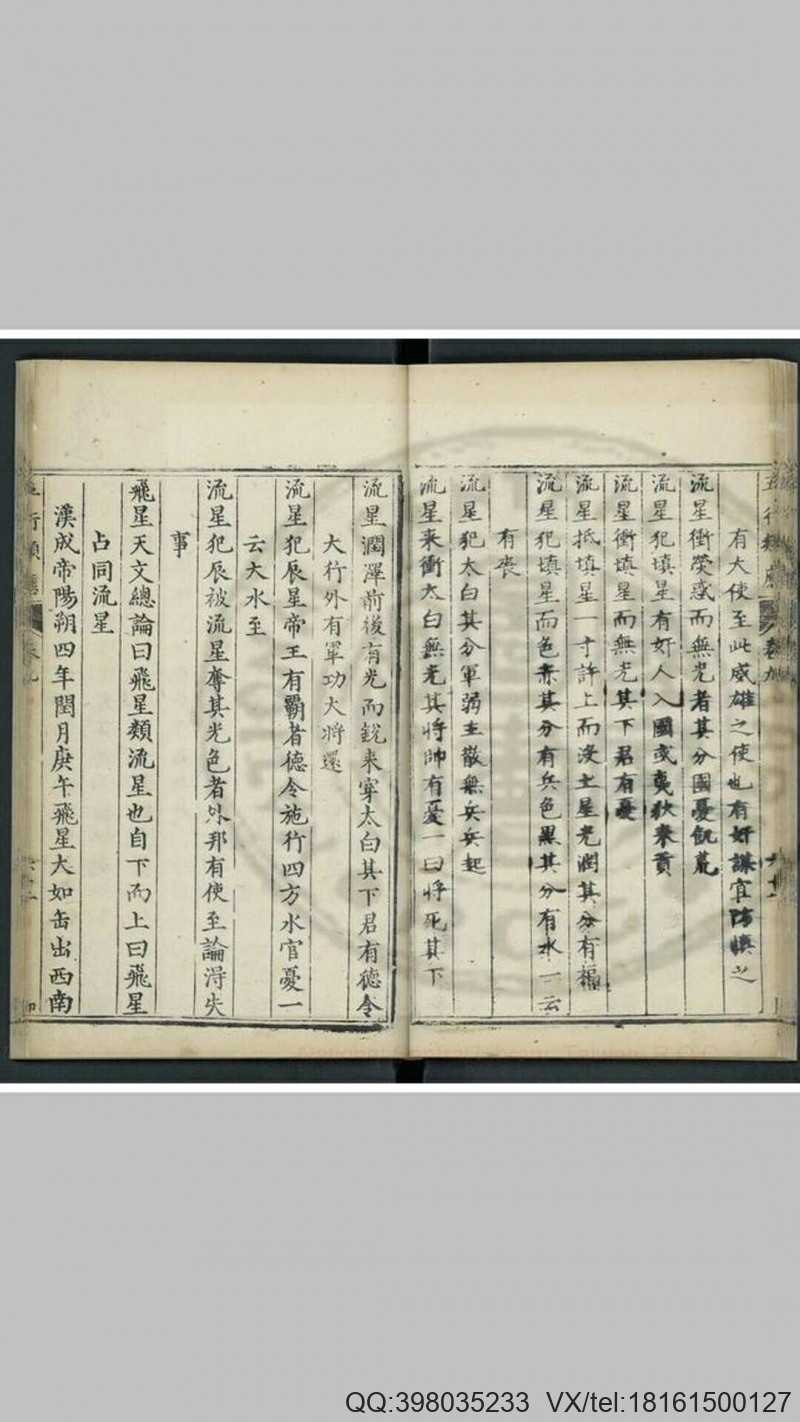 五行類應 卷九
有大使至此威雄之使也有奸謀宜防慎之
流星衝熒惑而無光者其分國憂飢荒
流星犯填星有奸人入國或夷狄來貢
流星衝填星而無光其下君有憂
流星抵填星一寸許上而沒土星光潤其分有福
流星犯填星而色赤其分有兵色黑其分有水一云
有喪
流星犯太白其分軍弱主散無兵兵起
流星來衝太白無光其將帥有憂一曰將死其下
流星潤澤前後有光而銳來穿太白其下君有德令
大行外有軍功大將還
流星犯辰星帝王有霸者德令施行四方水官憂一
云大水至
流星犯辰被流星奪其光色者外邦有使至論淂失
事
飛星天文總論曰飛星類流星也自下而上曰飛星
占同流星
漢成帝陽朔四年閏月庚午飛星大如缶出西南
五行類應 卷九
QQ:398035233 VX/tel:18161500127